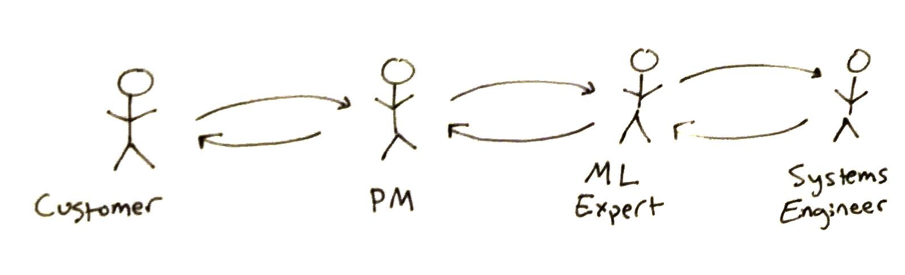 Customer
PM
ML
Expert
Systems
Engineer